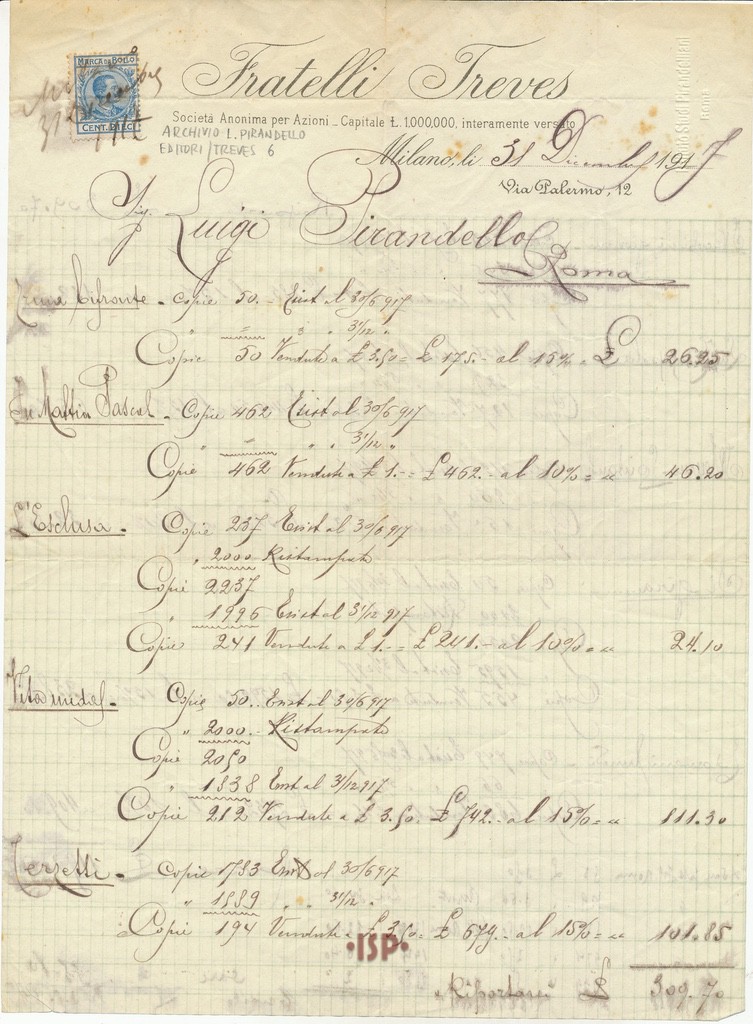 MARCA DA BOLLO
CENT. DIECI
Fratelli Treves
Società Anonima per Azioni - Capitale £. 1,000,000, interamente versato
ARCHIVIO L. PIRANDELLO
EDITORI/TREVES 6
Milano, li 31 Dicembre 1917
Via Palermo, 12
Sig. Luigi Pirandello
Roma
Erma bifronte - Copie 50. - Esist al 30/6 917
" " " 31/12 "
Copie 50 Vendute a £ 3.50 = £ 175. - al 15% = £ 26.25
Fu Mattia Pascal - Copie 462 Esist al 30/6 917
" " " 31/12 "
Copie 462 Vendute a £ 1. - = £ 462. - al 10% = " 46.20
L'Esclusa - Copie 237 Esist al 30/6 917
" 2000 Ristampate
Copie 2237
" 1996 Esist al 31/12 917
Copie 241 Vendute a £ 1. - = £ 241. - al 10% = " 24.10
Copie 50. - Esist al 30/6 917
" 2000 - Ristampate
Copie 2050
" 1838 Esist al 31/12 917
Copie 212 Vendute a £ 3.50 = £ 742. - al 15% = " 111.30
Terzetti - Copie 1783 Esist al 30/6 917
" 1589 " " 31/12 "
Copie 194 Vendute a £ 3.50 = £ 679. - al 15% = " 101.85
·ISP·
Riportarsi £ 309.70